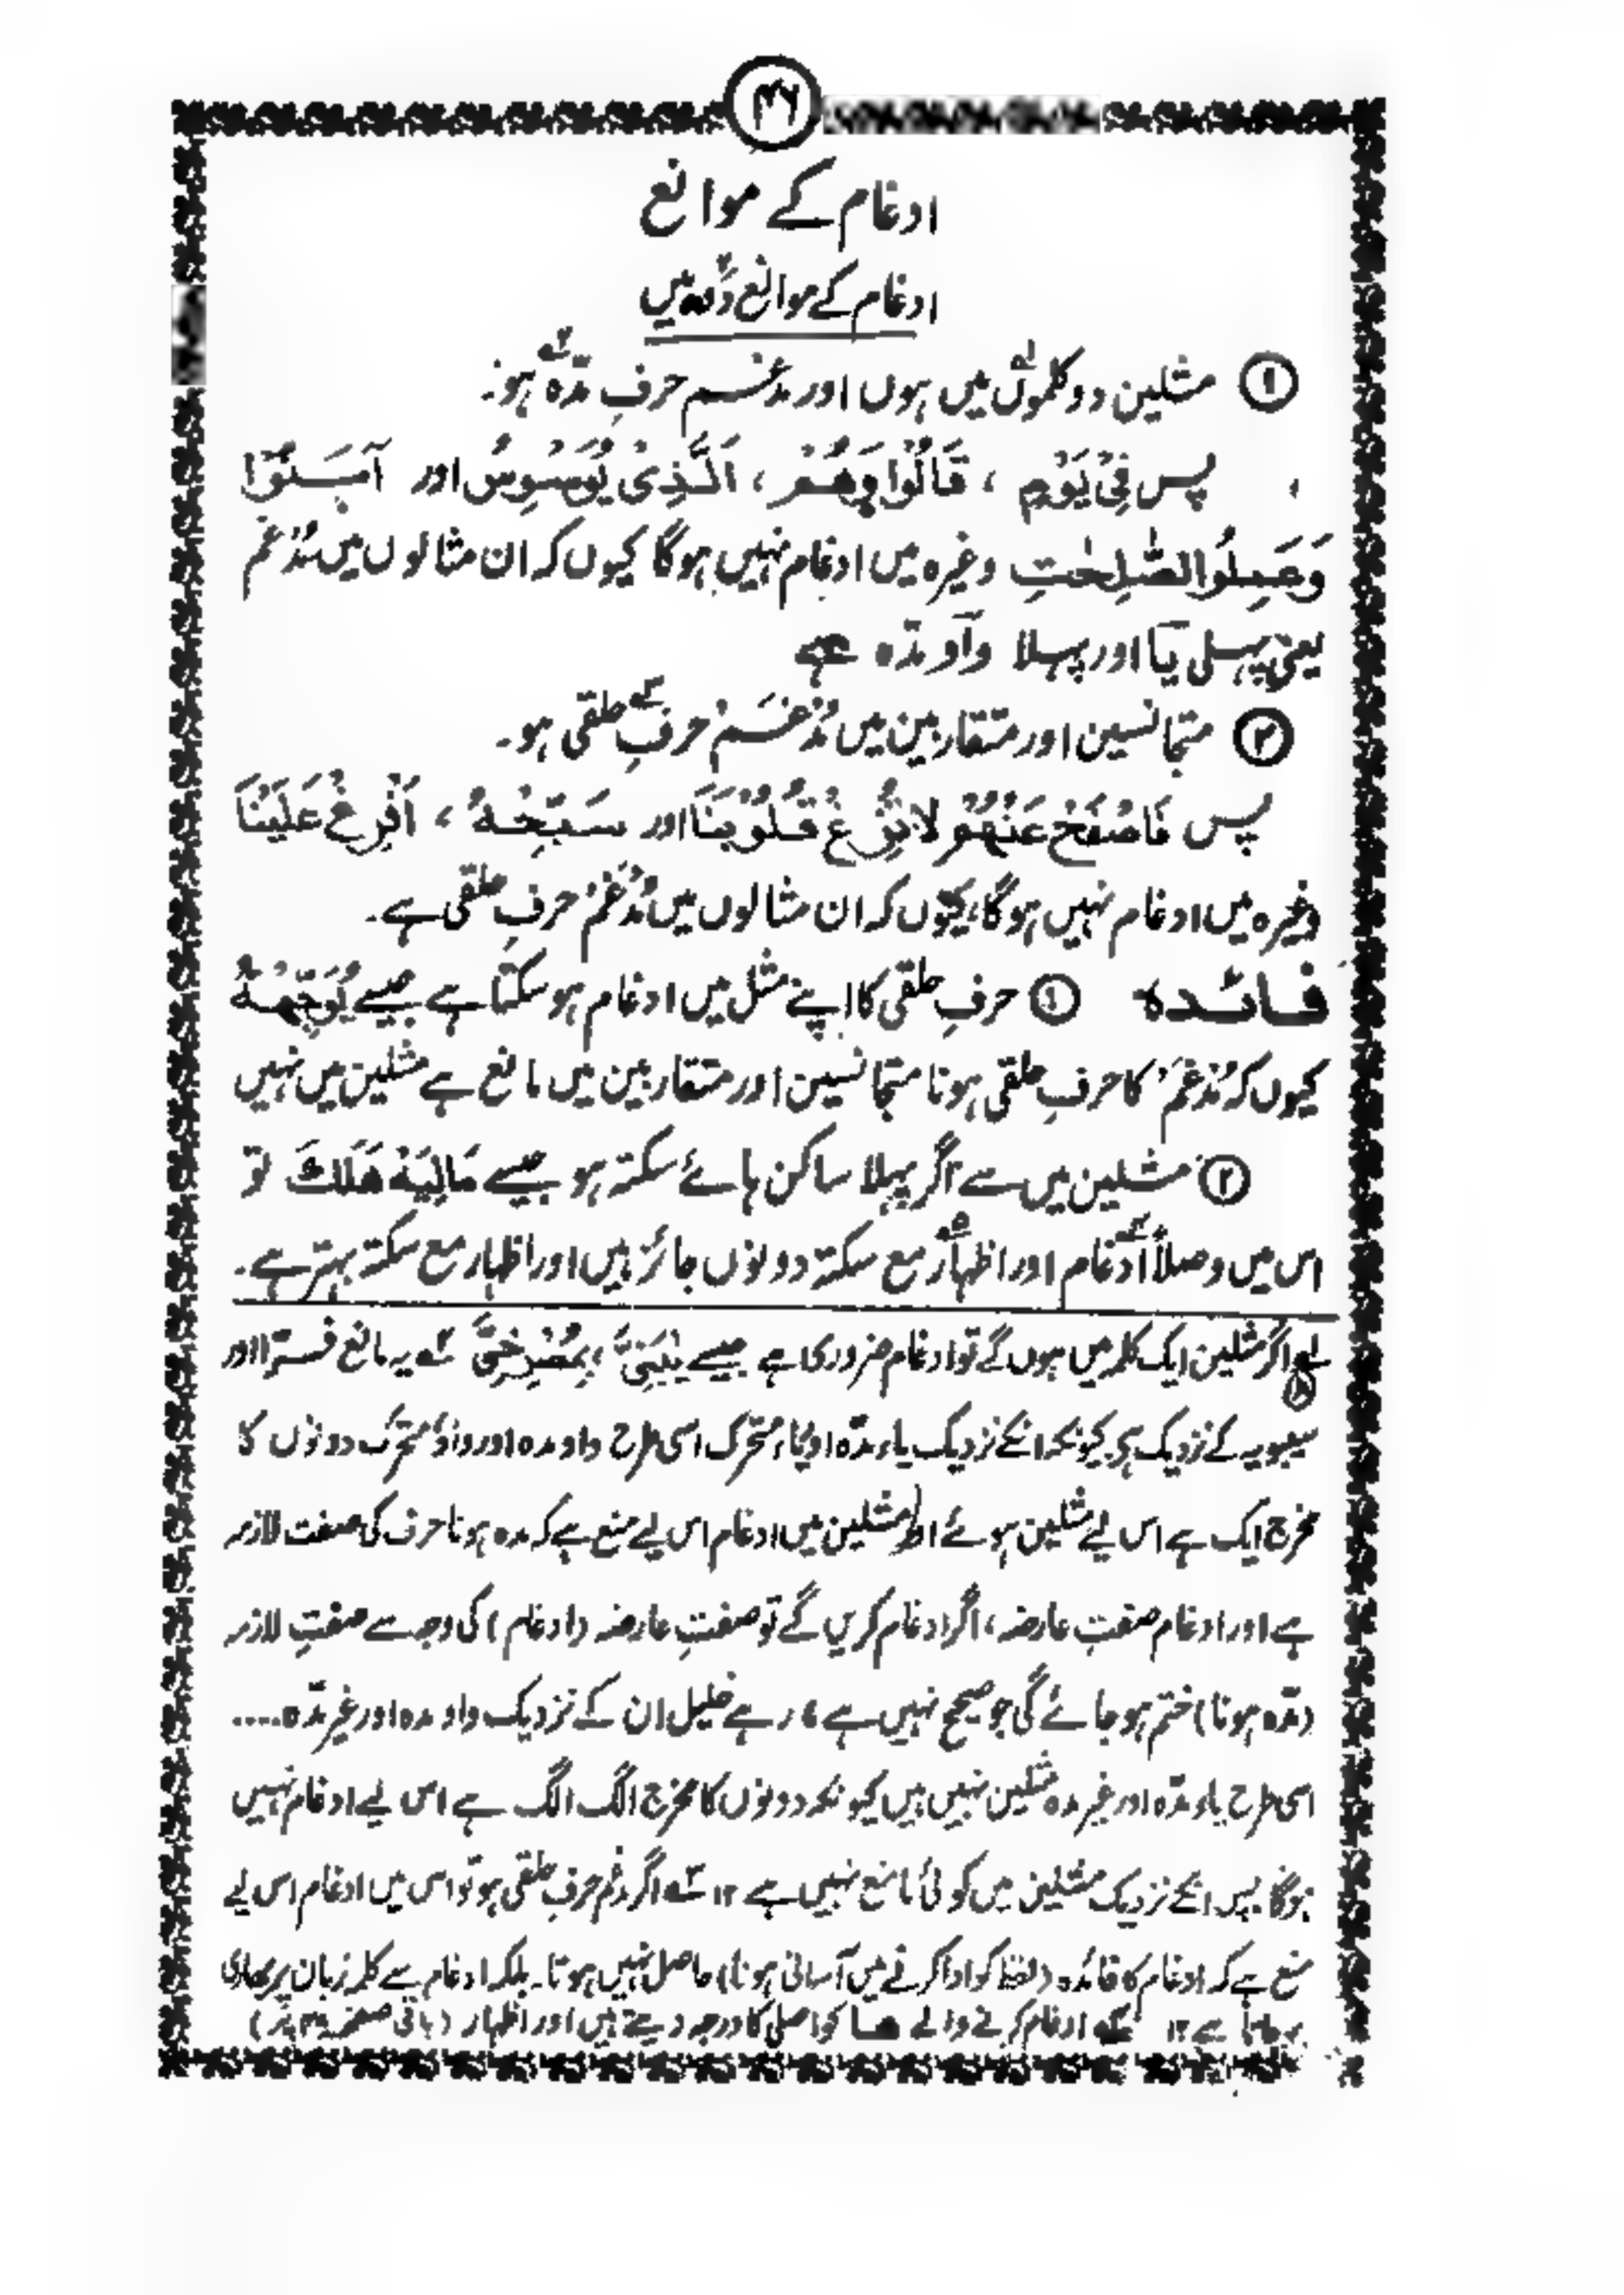 ۳۷
ادغام کے موانع
ادغام کے موانع دو ہیں
① مثلین دو کلموں میں ہوں اور مدغم حرفِ مدّہ ہو۔
پس فِیْ یَوْمٍ ، قَالُوْا وَهُمْ ، اَلَّذِیْ یُوَسْوِسُ اور آمَنُوْا
وَعَمِلُوا الصّٰلِحٰتِ وغیرہ میں ادغام نہیں ہوگا کیوں کہ ان مثالوں میں مُدْغَم
یعنی پہلی یَا اور پہلا وآو مدّہ ہے
② متجانسین اور متقاربین میں مُدْغَمْ حرفِ حلقی ہو۔
پس فَاصْفَحْ عَنْهُمْ لَا تُزِغْ قُلُوْبَنَا اور سَبِّحْهُ ، اَفْرِغْ عَلَیْنَا
وغیرہ میں ادغام نہیں ہوگا، کیوں کہ ان مثالوں میں مُدْغَمْ حرفِ حلقی ہے۔
فائدہ ① حرفِ حلقی کا اپنے مثل میں ادغام ہو سکتا ہے جیسے یُوَجِّهْهُ
کیوں کہ مُدْغَمْ کا حرفِ حلقی ہونا متجانسین اور متقاربین میں مانع ہے مثلین میں نہیں
② مثلین میں سے اگر پہلا ساکن ہائے سکتہ ہو جیسے مَالِیَهْ هَلَكَ تو
اس میں وصلاً ادغام اور اظہار مع سکتہ دونوں جائز ہیں اور اظہار مع سکتہ بہتر ہے۔
لہ اگر مثلین ایک کلمہ میں ہوں گے تو ادغام ضروری ہے جیسے یٰبَنِیَّ ، بِمُصْرِخِیَّ ۲ یہ مانع فرّا اور
سیبویہ کے نزدیک ہے کیونکہ انکے نزدیک یاء مدّہ اور یاء متحرک اسی طرح واو مدہ اور واؤ متحرک دونوں کا
مخرج ایک ہے اس لیے مثلین ہوئے اور مثلین میں ادغام اس لیے منع ہے کہ مدہ ہونا حرف کی صفت لازمہ
ہے اور ادغام صفتِ عارضہ، اگر ادغام کریں گے تو صفتِ عارضہ (ادغام) کی وجہ سے صفتِ لازمہ
(مدّہ ہونا) ختم ہو جائے گی جو صحیح نہیں ہے، رہے خلیل ان کے نزدیک واو مدہ اور غیر مدّہ ....
اسی طرح یاء مدّہ اور غیر مدہ مثلین نہیں ہیں کیونکہ دونوں کا مخرج الگ الگ ہے اس لیے ادغام نہیں
ہوگا پس انکے نزدیک مثلین میں کوئی مانع نہیں ہے ۱۲ ۳ اگر مدغم حرفِ حلقی ہو تو اس میں ادغام اس لیے
منع ہے کہ ادغام کا فائدہ (لفظ کو ادا کرنے میں آسانی ہونا) حاصل نہیں ہوتا۔ بلکہ ادغام سے کلمہ زبان پر بھاری
ہو جاتا ہے ۱۲ ۴ ادغام کرنے والے ھا کو اصلی کا درجہ دیتے ہیں اور اظہار (باقی صفحہ ۳۸ پر)